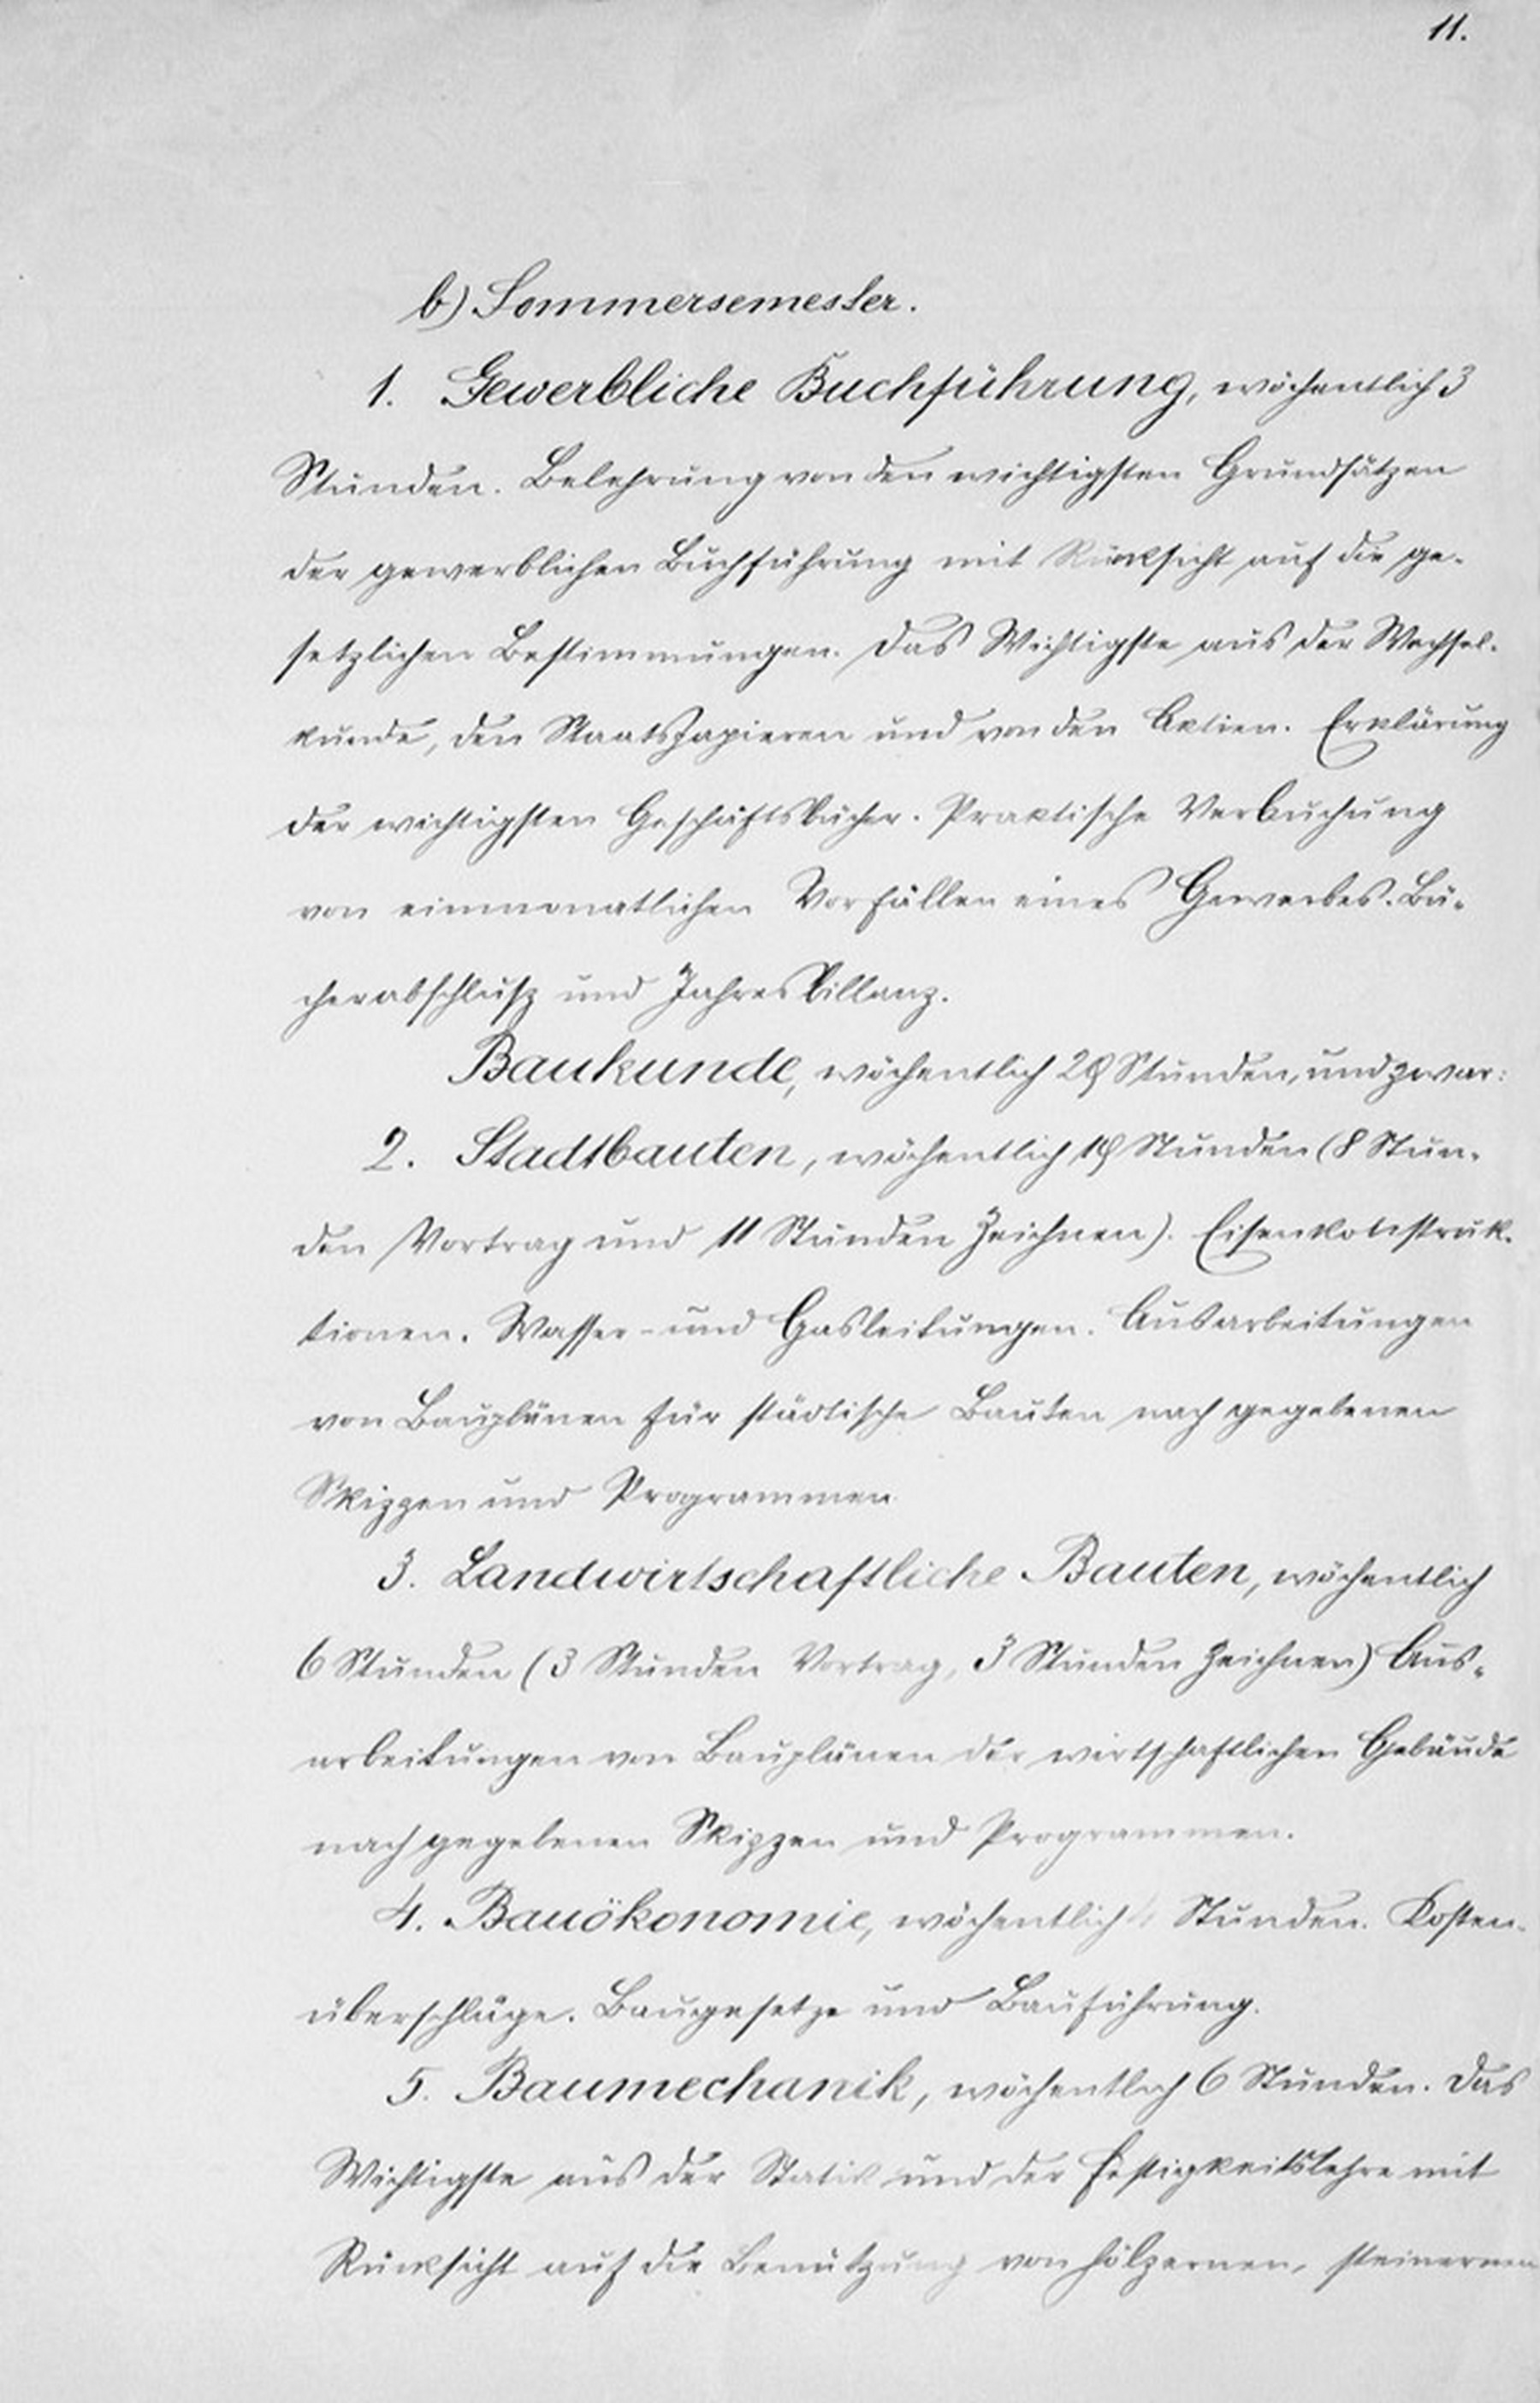 11.
b) Sommersemester.
1. Gewerbliche Buchführung, wöchentlich 3
Stunden. Belehrung von den wichtigsten Grundsätzen
der gewerblichen Buchführung mit Rücksicht auf die ge-
setzlichen Bestimmungen. Das Wichtigste aus der Wechsel-
kunde, den Staatspapieren und von den Aktien. Erklärung
der wichtigsten Geschäftsbücher. Praktische Verbuchung
von einmonatlichen Vorfällen eines Gewerbes. Bü-
cherabschluß und Jahresbillanz.
Baukunde, wöchentlich 29 Stunden, und zwar:
2. Stadtbauten, wöchentlich 19 Stunden (8 Stun-
den Vortrag und 11 Stunden Zeichnen). Eisenkonstruk-
tionen. Wasser- und Gasleitungen. Ausarbeitungen
von Bauplänen für städtische Bauten nach gegebenen
Skizzen und Programmen
3. Landwirtschaftliche Bauten, wöchentlich
6 Stunden (3 Stunden Vortrag, 3 Stunden Zeichnen) Aus-
arbeitungen von Bauplänen der wirtschaftlichen Gebäude
nach gegebenen Skizzen und Programmen.
4. Bauökonomie, wöchentlich 4 Stunden. Kosten-
überschläge. Baugesetze und Bauführung.
5. Baumechanik, wöchentlich 6 Stunden. Das
Wichtigste aus der Statik und der Festigkeitslehre mit
Rücksicht auf die Benützung von hölzernen, steinernen